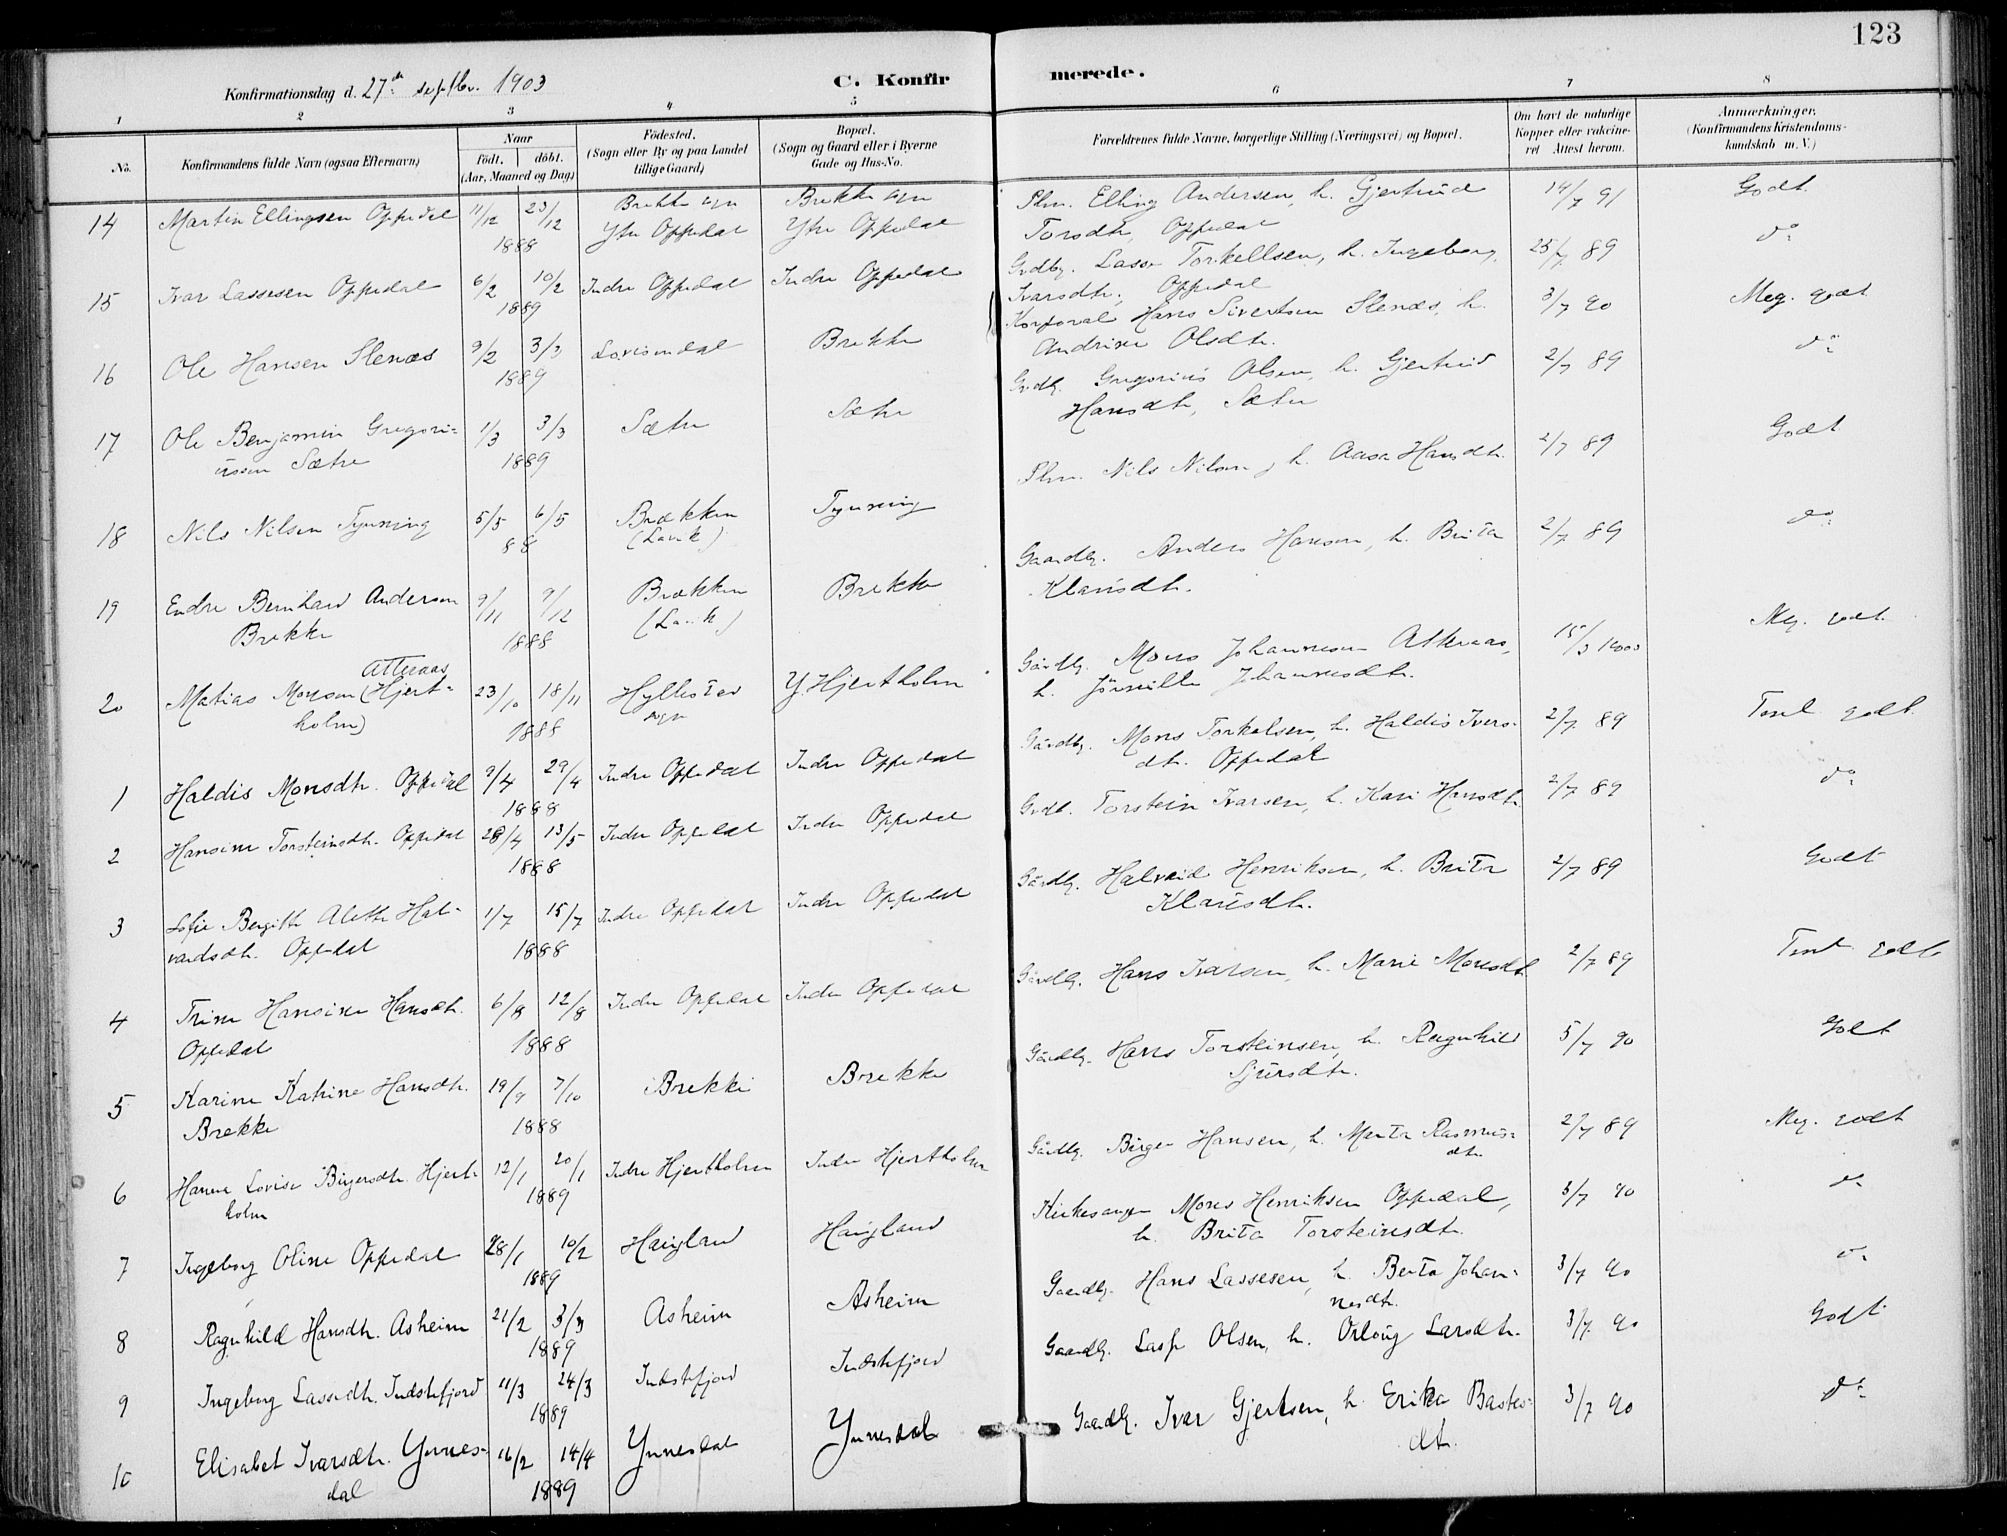 123
Konfirmationsdag d. 27de septbr. 1903
C. Konfirmerede.
1 2 3 4 5 6 7 8
No.
Konfirmandens fulde Navn (ogsaa Efternavn)
Naar
födt. döbt.
(Aar, Maaned og Dag)
Födested.
(Sogn eller By og paa Landet
tillige Gaard)
Bopæl.
(Sogn og Gaard eller i Byerne
Gade og Hus-No.
Forældrenes fulde Navne, borgerlige Stilling (Næringsvei) og Bopæl.
Om havt de naturlige
Kopper eller vakcine-
ret Attest herom.
Anmærkninger.
(Konfirmandens Kristendoms-
kundskab m. V.)
14 Martin Ellingsen Oppedal 11/12 23/12 1888 Brekke sgn Ytre Oppedal Brekke sgn Ytre Oppedal Plm. Elling Andersen, h. Gjertrud
Torsdtr, Oppedal 14/7 91 Godt
15 Ivar Lassesen Oppedal 6/2 10/2 1889 Indre Oppedal Indre Oppedal Grdbr. Lasse Torkellsen, h. Ingeborg
Ivarsdtr., Oppedal 25/7 89 do
16 Ole Hansen Slenæs 9/2 3/3 1889 Lovisendal Brekke Korporal Hans Sivertsen Slenæs, h.
Andrine Olsdtr. 3/7 90 Meg. godt
17 Ole Benjamin Gregori-
ussen Sætre 1/3 3/3 1889 Sætre Sætre Grdbr. Gregorius Olsen, h. Gjertrud
Hansdtr, Sætre 2/7 89 do
18 Nils Nilsen Tynning 5/5 6/5 88 Brækken
(Lavik) Tynning Plm. Nils Nilsen, h. Aasa Hansdtr. 2/7 89 Godt
19 Endre Bernhard Andersen
Brekke 9/11 9/12 1888 Brækken
(Lavik) Brekke Gaardbr. Anders Hansen, h. Brita
Klausdtr. 2/7 89 do
20 Matias Monsen Atteraas (Hjert-
holm) 23/10 18/11 1888 Hyllestad
sogn Y. Hjertholm Gårdbr. Mons Johannesen Atteraas,
h. Jørnille Johannesdtr. 15/3 1900 Meg. godt
1 Haldis Monsdtr. Oppedal 9/4 29/4 1888 Indre Oppedal Indre Oppedal Gårdbr. Mons Torkelsen, h. Haldis Ivers-
dtr. Oppedal 2/7 89 Teml. godt
2 Hansine Torsteinsdtr. Oppedal 28/4 13/5 1888 Indre Oppedal Indre Oppedal Grdb. Torstein Ivarsen, h. Kari Hansdtr 2/7 89 do
3 Sofie Bergitte Alette Hal-
vardsdtr. Oppedal 1/7 15/7 1888 Indre Oppedal Indre Oppedal Gårdbr. Halvard Henriksen, h. Brita
Klausdtr. 2/7 89 Godt
4 Trine Hansine Hansdtr.
Oppedal 6/8 12/8 1888 Indre Oppedal Indre Oppedal Gårdbr. Hans Ivarsen, h. Marie Monsdtr 2/7 89 Teml. godt
5 Karine Katrine Hansdtr.
Brekke 19/9 7/10 1888 Brekke Brekke Gårdbr. Hans Torsteinsen, h. Ragnhild
Sjursdtr. 5/7 90 Godt
6 Hanne Lovise Birgersdtr. Hjert-
holm 12/1 20/1 1889 Indre Hjertholm Indre Hjertholm Gårdbr. Birger Hansen, h. Marta Rasmus-
dtr. 2/7 89 Meg. godt
7 Ingeborg Oline Oppedal 28/1 10/2 1889 Haugland Haugland Kirkesanger Mons Henriksen Oppedal,
h. Brita Torsteinsdtr. 3/7 90 do
8 Ragnhild Hansdtr. Asheim 21/2 3/3 1889 Asheim Asheim Gaardbr. Hans Lassesen, h. Berta Johan-
nesdtr. 3/7 90 do
9 Ingeborg Lassedtr. Indstefjord 11/3 24/3 1889 Indstefjord Indstefjord Gaardbr. Lasse Olsen, h. Orloug Larsdtr. 3/7 90 Godt
10 Elisabet Ivarsdtr. Ynnes-
dal 16/2 14/4 1889 Ynnesdal Ynnesdal Gaardbr. Ivar Gjertsen, h. Erika Bastes-
dtr. 3/7 90 do